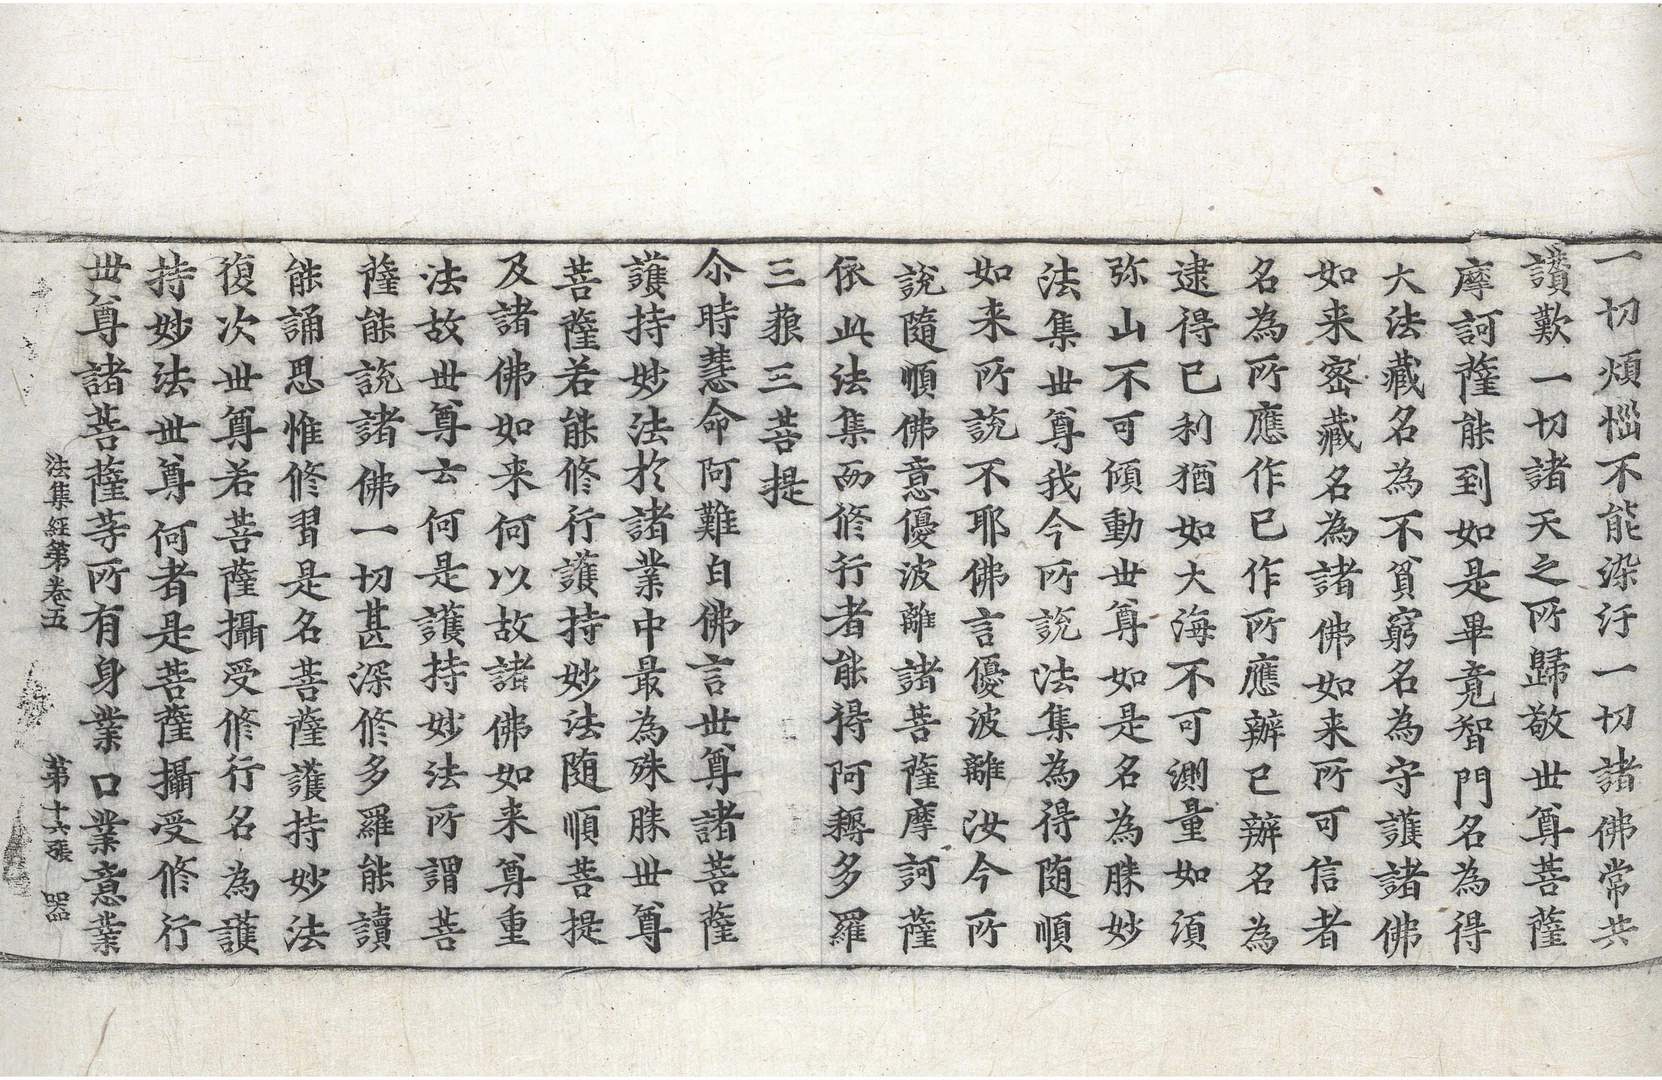 一切煩惱不能染汙一切諸佛常共
讚歎一切諸天之所歸敬世尊菩薩
摩訶薩能到如是畢竟智門名為得
大法藏名為不貧窮名為守護諸佛
如来密藏名為諸佛如来所可信者
名為所應作已作所應辦已辦名為
逮得已利猶如大海不可測量如須
弥山不可傾動世尊如是名為勝妙
法集世尊我今所說法集為得随順
如来所說不耶佛言優波離汝今所
說隨順佛意優波離諸菩薩摩訶薩
依此法集而修行者能得阿耨多羅
三藐三菩提
尒時慧命阿難白佛言世尊諸菩薩
護持妙法於諸業中最為殊勝世尊
菩薩若能修行護持妙法随順菩提
及諸佛如来何以故諸佛如来尊重
法故世尊云何是護持妙法所謂菩
薩能說諸佛一切甚深修多羅能讀
能誦思惟修習是名菩薩護持妙法
復次世尊若菩薩攝受修行名為護
持妙法世尊何者是菩薩攝受修行
世尊諸菩薩等所有身業口業意業
法集經第卷五 第十六張 器